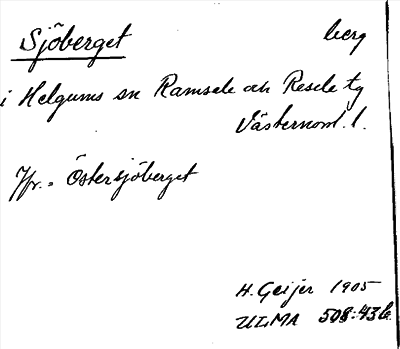 Sjöberget berg
i Helgums sn Ramsele och Resele tg
Västernorrl. l.
Jfr. Östersjöberget
H. Geijer 1905
ULMA 508:43b.